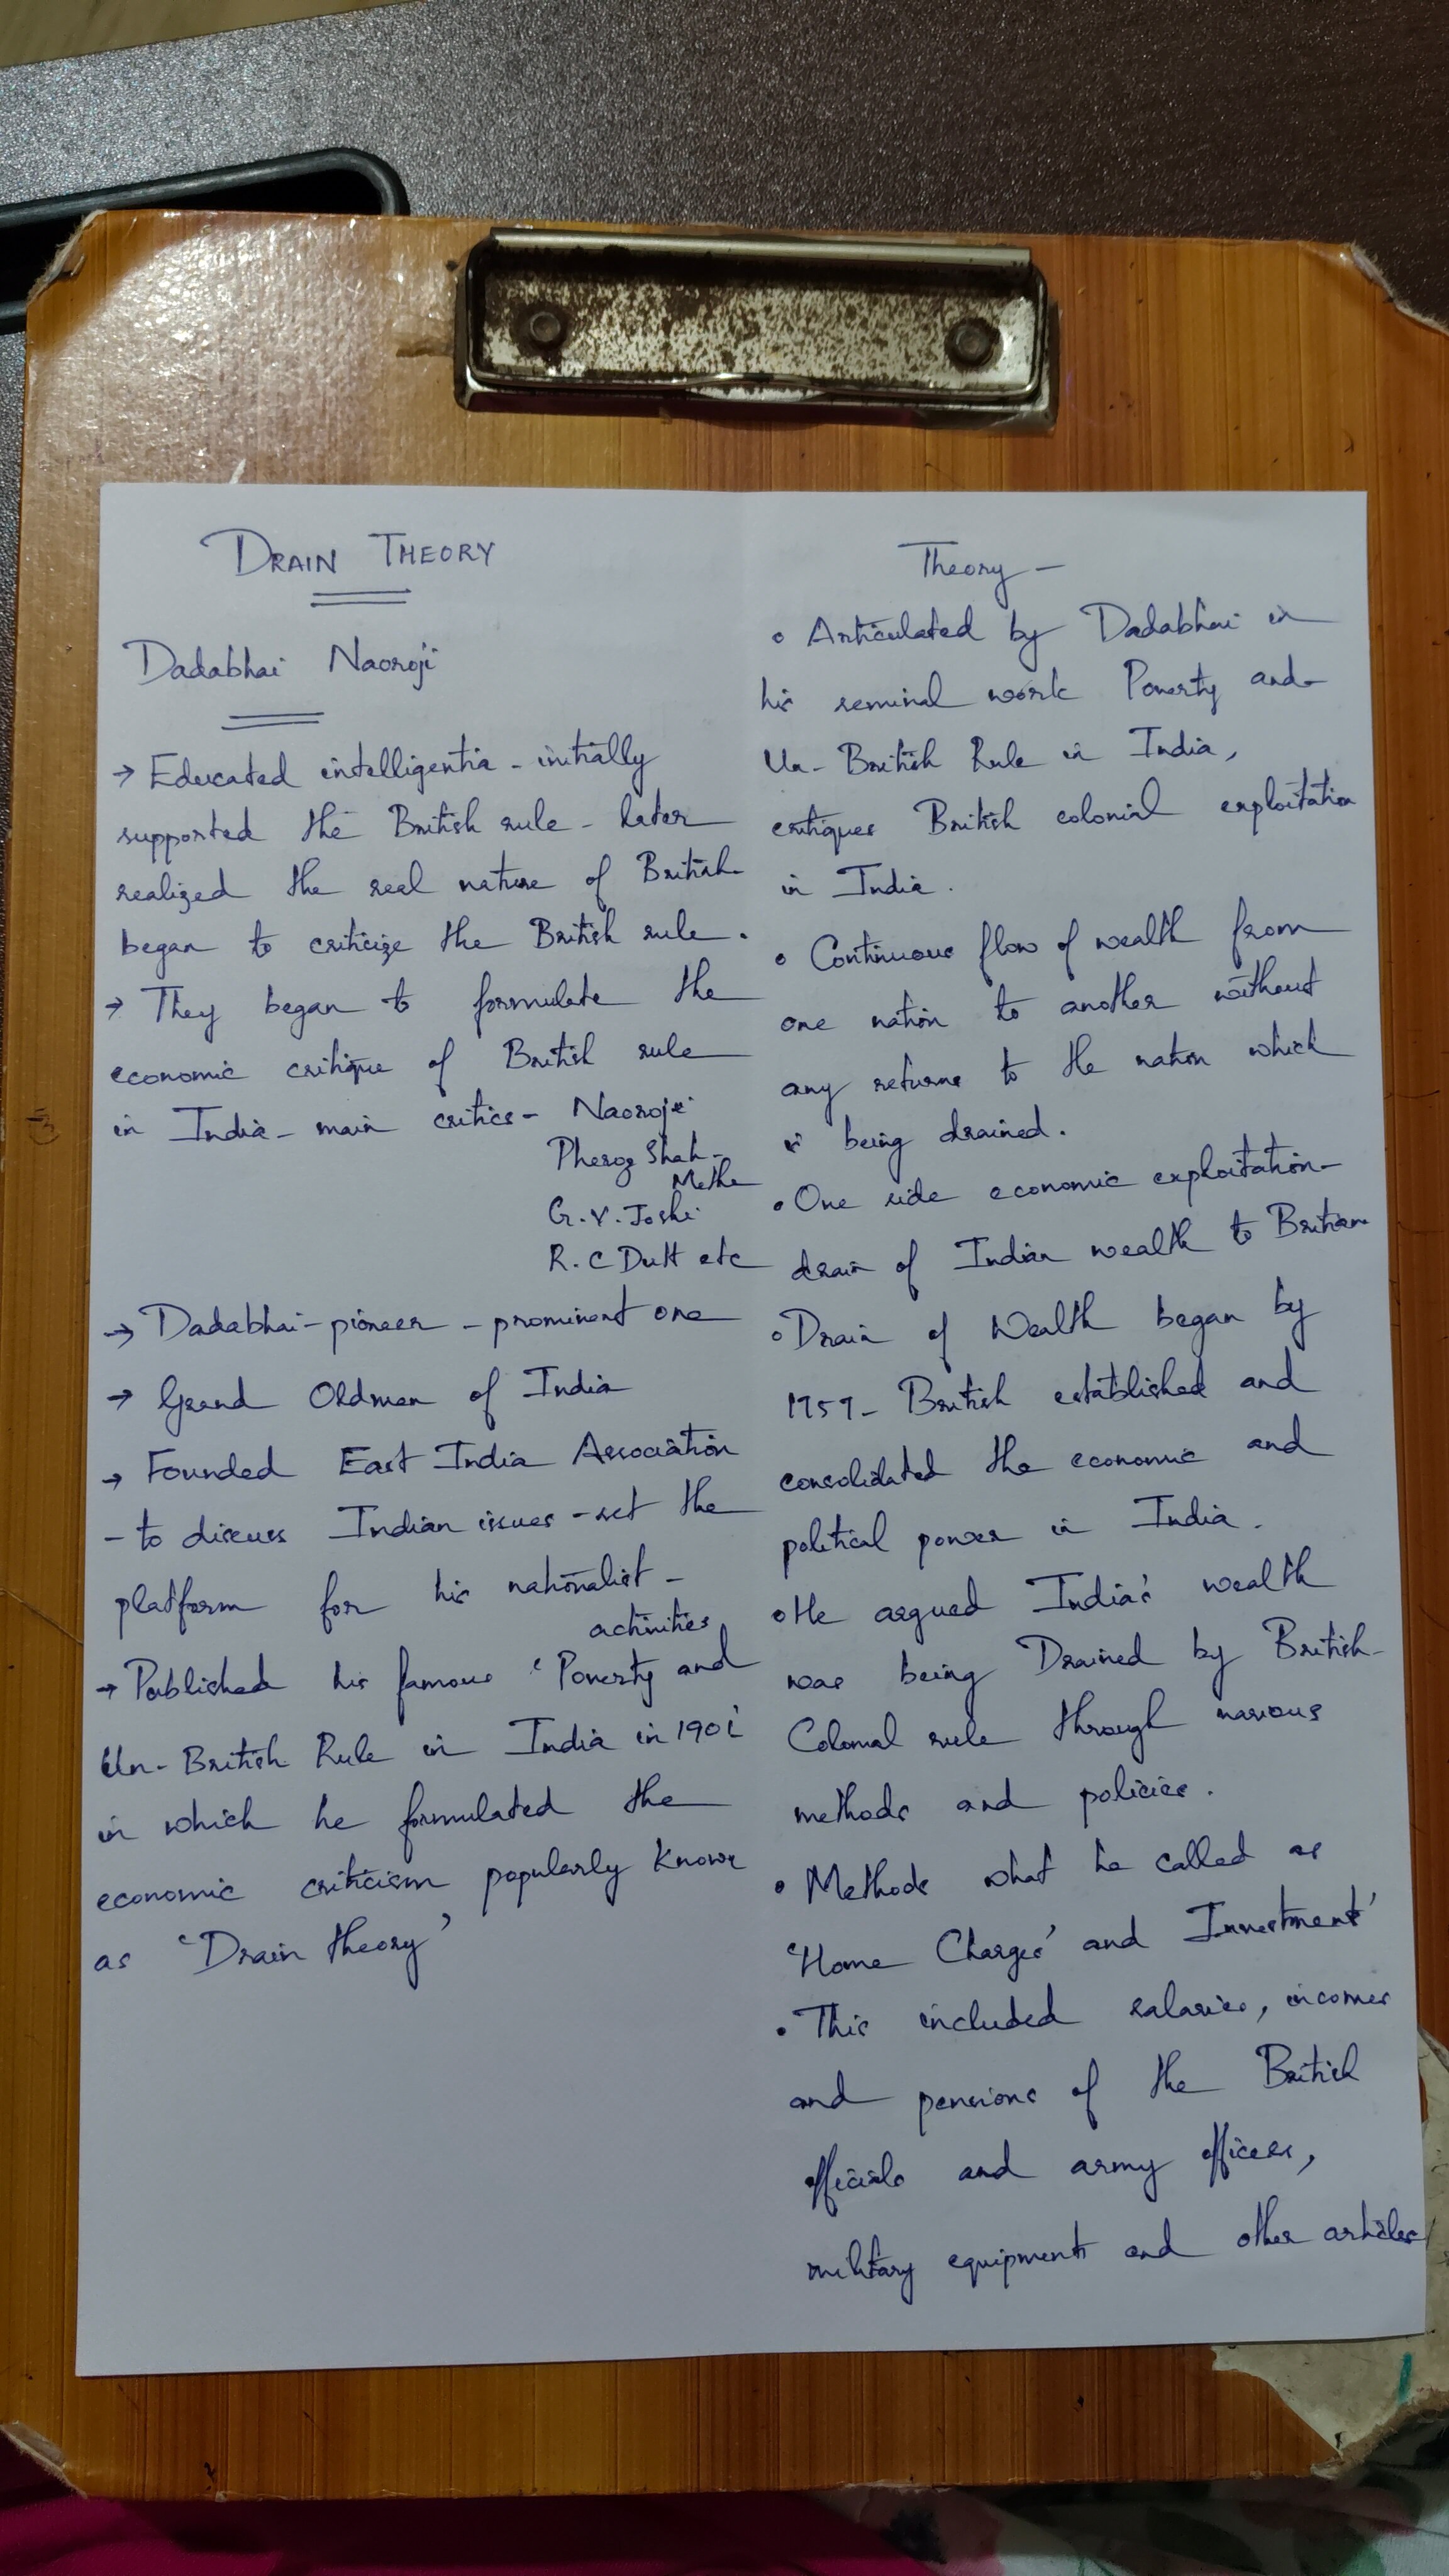 DRAIN THEORY
Dadabhai Naoroji
→ Educated intelligentia - initially
supported the British rule - later
realized the real nature of British
began to criticize the British rule.
→ They began to formulate the
economic critique of British rule
in India - main critics - Naoroji
Pheroz Shah -
Metha
G.V. Joshi
R.C Dutt etc
→ Dadabhai - pioneer - prominent one
→ Grand Oldman of India
→ Founded East India Association
- to discuss Indian issues - set the
platform for his nationalist -
activities
→ Published his famous 'Poverty and
Un-British Rule in India in 1901
in which he formulated the
economic criticism popularly known
as 'Drain theory'
Theory -
• Articulated by Dadabhai in
his seminal work Poverty and
Un-British Rule in India,
critiques British colonial exploitation
in India.
• Continuous flow of wealth from
one nation to another without
any returns to the nation which
is being drained.
• One side economic exploitation -
drain of Indian wealth to Britian
• Drain of Wealth began by
1757 - British established and
consolidated the economic and
political power in India.
• He argued India's wealth
was being Drained by British
Colonial rule through various
methods and policies.
• Methods what he called as
'Home Charges' and Investment'
• This included salaries, incomes
and pensions of the British
officials and army officers,
military equipments and other articles